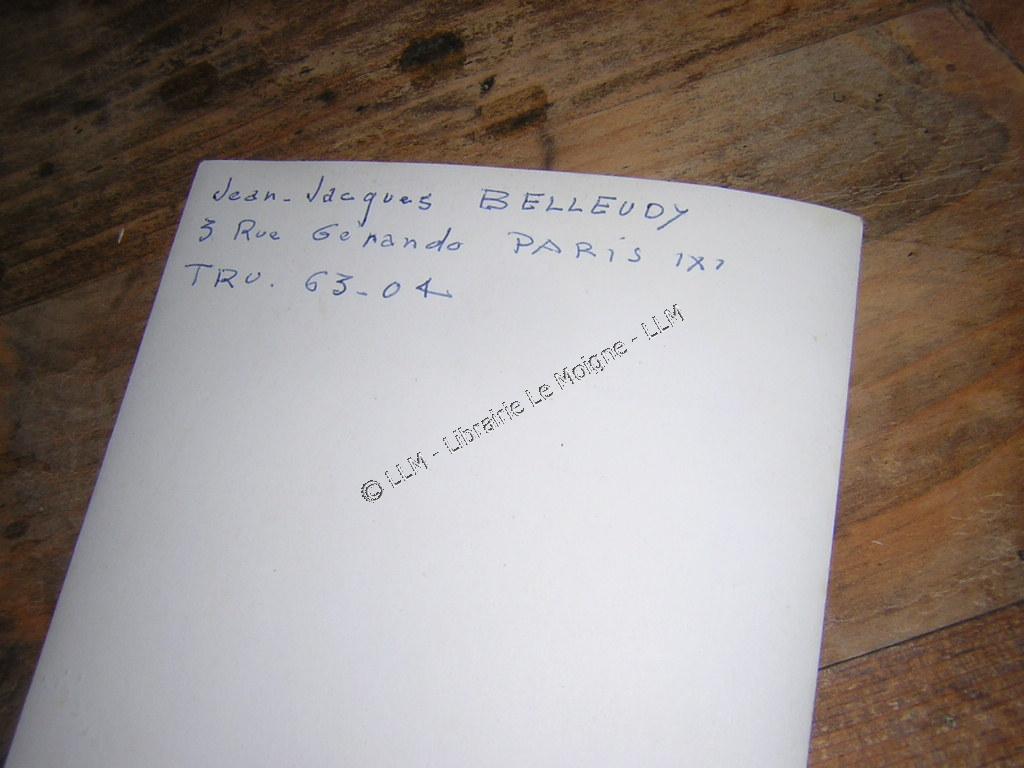 Jean-Jacques BELLEUDY
3 Rue Gerando PARIS IX?
TRU. 63-04
© LLM - Librairie Le Moigne - LLM